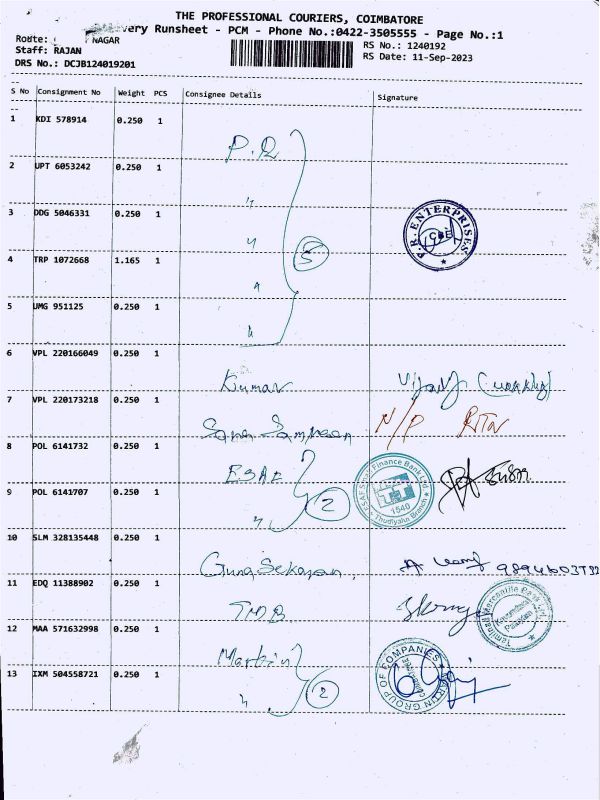 THE PROFESSIONAL COURIERS, COIMBATORE
very Runsheet - PCM - Phone No.:0422-3505555 - Page No.:1
Route: NAGAR
RS No.: 1240192
Staff: RAJAN
RS Date: 11-Sep-2023
DRS No.: DCJB124019201
S No Consignment No Weight PCS Consignee Details Signature
1 KDI 578914 0.250 1 P.R
2 UPT 6053242 0.250 1 "
3 DDG 5046331 0.250 1 " 5 P.R. ENTERPRISES CBE
4 TRP 1072668 1.165 1 "
5 UMG 951125 0.250 1 "
6 VPL 220166049 0.250 1 Kumar
7 VPL 220173218 0.250 1 N/P RTN
8 POL 6141732 0.250 1 ESAF ESAF Small Finance Bank Ltd. 1540 Thudiyalur Branch
9 POL 6141707 0.250 1 " 2
10 SLM 328135448 0.250 1 Guna Sekaran
11 EDQ 11388902 0.250 1 TMB Tamilnad Mercantile Bank Ltd
12 MAA 571632998 0.250 1 Martin MARTIN GROUP OF COMPANIES COIMBATORE
13 IXM 504558721 0.250 1 " 2